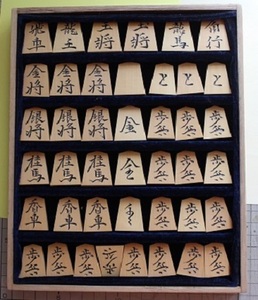 飛車 龍王 王將 玉將 龍馬 角行
金将 金将 金将 と と と
銀将 銀将 銀将 金 歩兵 歩兵 歩兵
桂馬 桂馬 桂馬 歩兵 歩兵 歩兵
香車 香車 歩兵 歩兵 歩兵
歩兵 歩兵 歩兵 歩兵 歩兵 歩兵